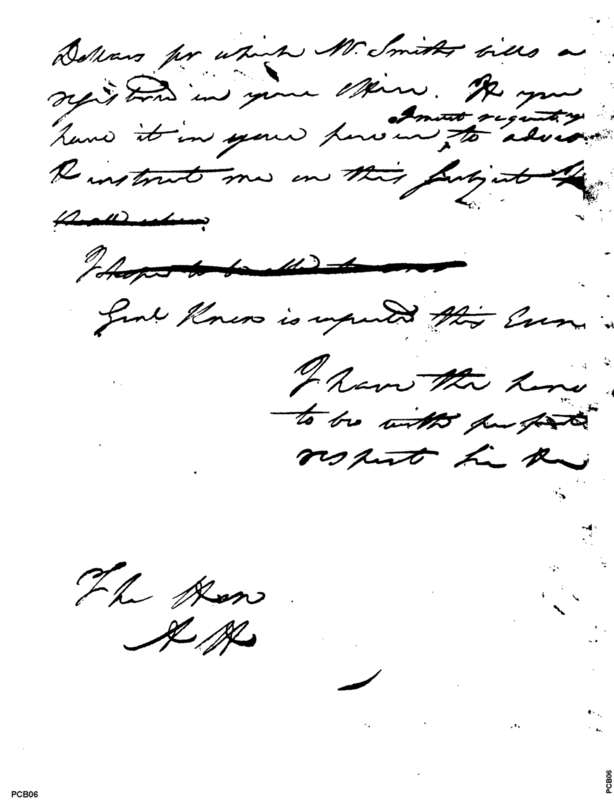 Dollars for which Mr. Smiths bills a
registered in your Office. If you
I must request y
have it in your power to advis
& instruct me on this Subject

I hope to be able to
Genl Knox is expected this Even
I have the hono
to be with perfect
respect Sir &c
The Hon
A H
PCB06
PCB06